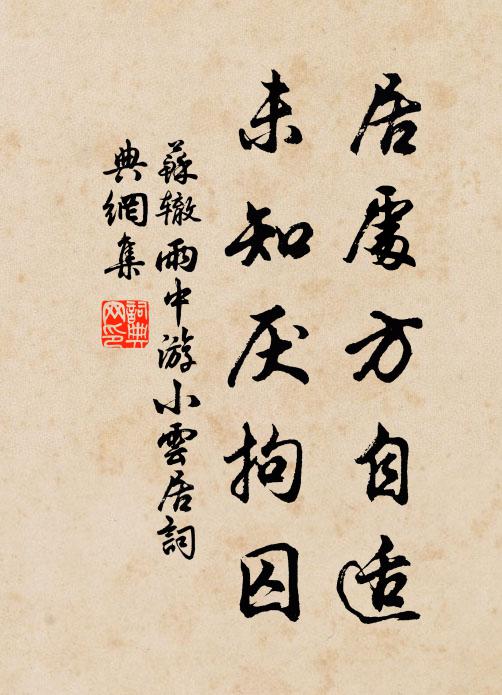 居處方自适
未知厌拘囚
蘇辙雨中游小雲居詞
典網集
詞典
网印